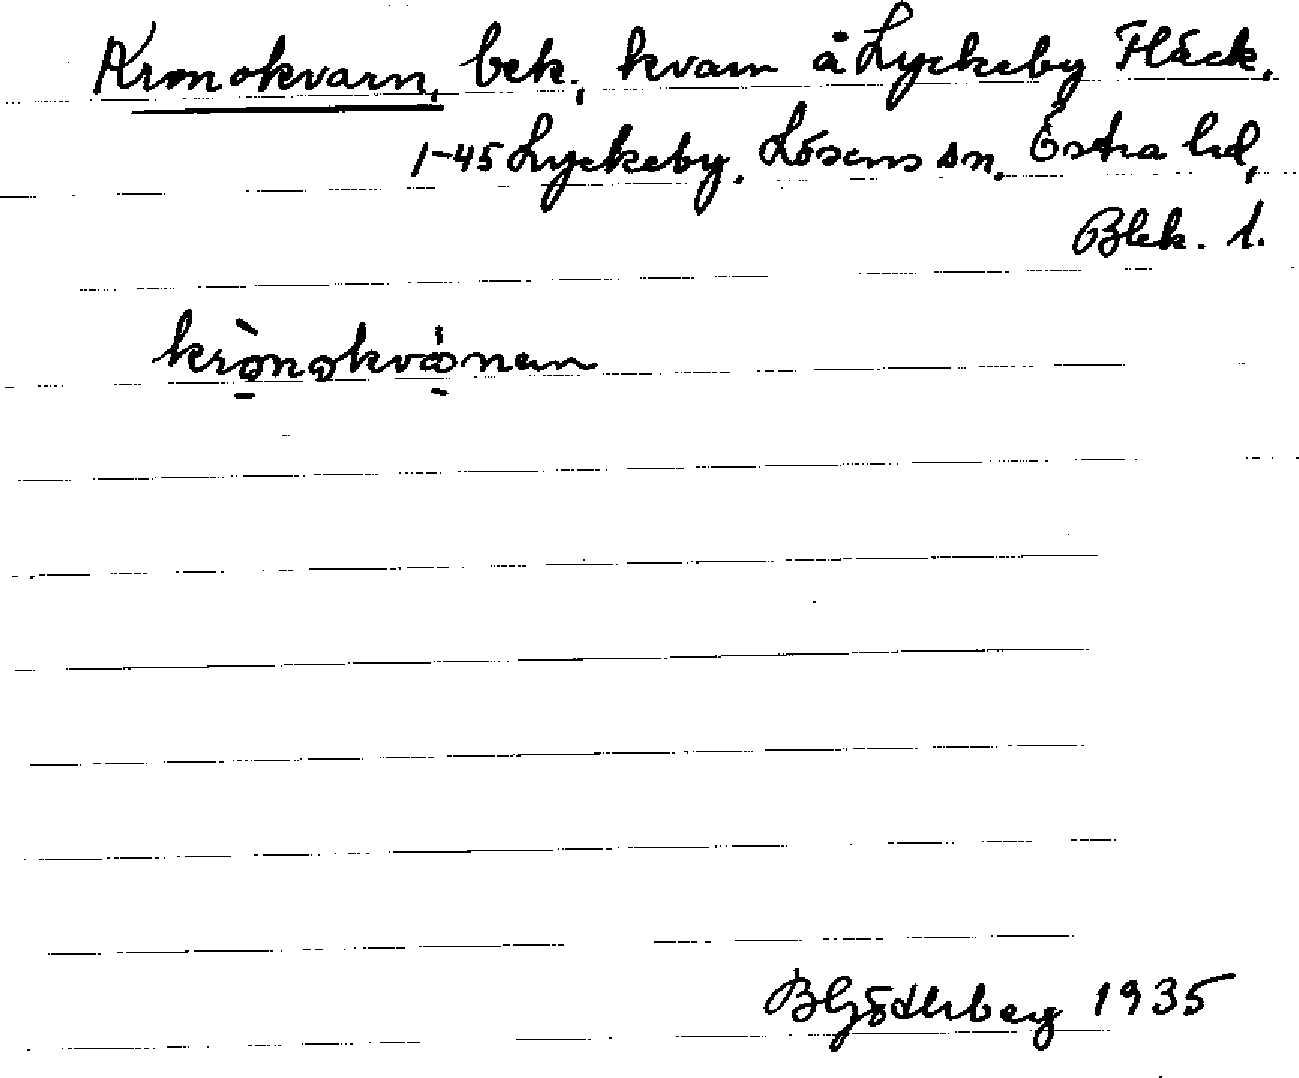 Kronokvarn, bek., kvarn å Lyckeby Fläck,
1-45 Lyckeby. Lösens sn. Östra hd,
Blek. l.
krònokvånan
BGötlberg 1935